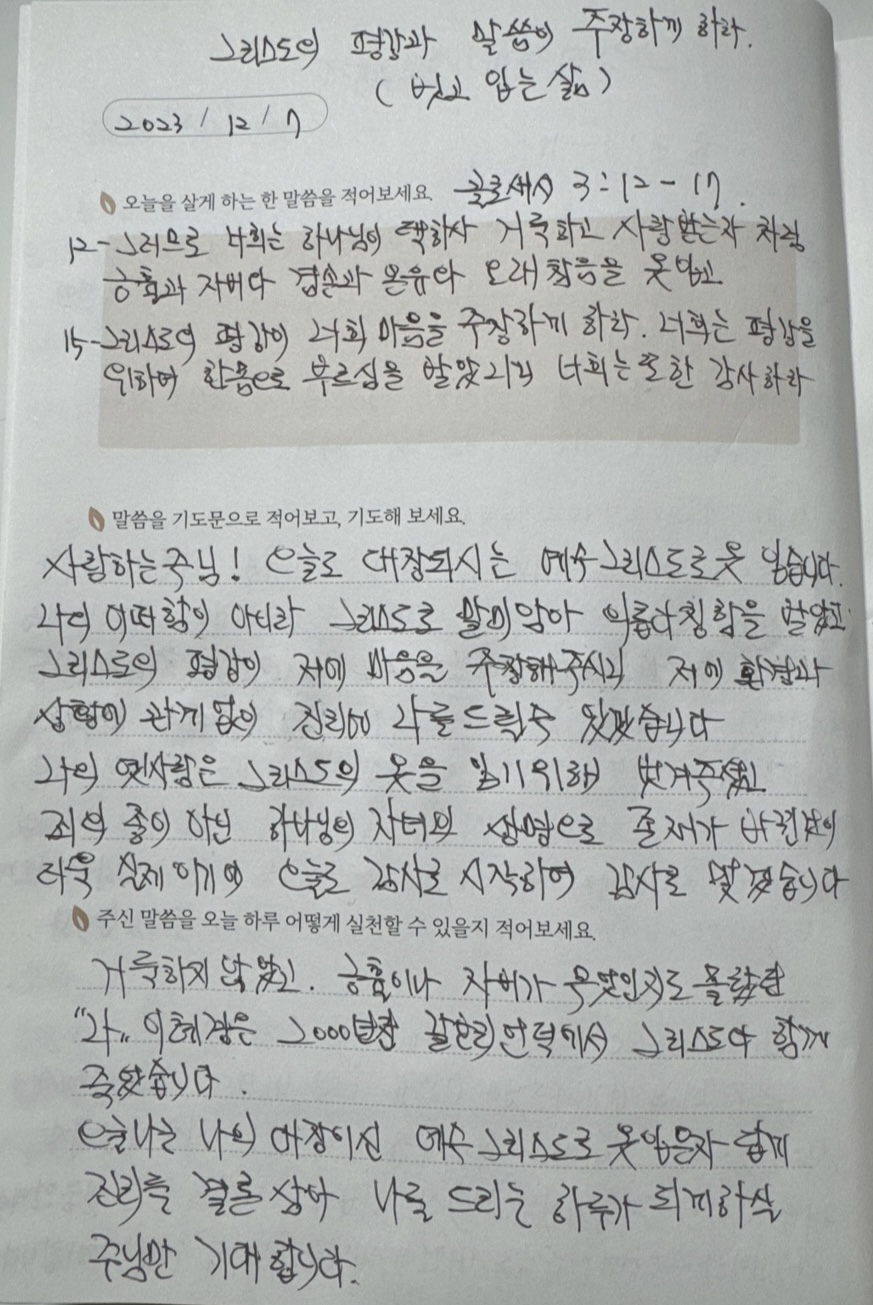 그리스도의 평강과 말씀이 주장하게 하라.
(벗고 입는 삶)
2023 / 12 / 7
오늘을 살게 하는 한 말씀을 적어보세요. 골로새서 3:12-17.
12- 그러므로 너희는 하나님이 택하사 거룩하고 사랑받는자 처럼
긍휼과 자비와 겸손과 온유와 오래 참음을 옷입고
15- 그리스도의 평강이 너희 마음을 주장하게 하라. 너희는 평강을
위하여 한몸으로 부르심을 받았나니 너희는 또한 감사하라
말씀을 기도문으로 적어보고, 기도해 보세요.
사랑하는 주님! 오늘도 대장되시는 예수 그리스도로 옷 입습니다.
나의 어떠함이 아니라 그리스도로 말미암아 의롭다 칭함을 받았고
그리스도의 평강이 저의 마음을 주장해주시니 저의 환경과
상황에 관계 없이 진리에 나를 드릴수 있겠습니다
나의 옛사람은 그리스도의 옷을 입기위해 벗겨주셨고
죄의 종이 아닌 하나님의 자녀의 생명으로 존재가 바뀐것이
더욱 실제 이기에 오늘도 감사로 시작하여 감사로 맺겠습니다
주신 말씀을 오늘 하루 어떻게 실천할 수 있을지 적어보세요.
거룩하지 않았고. 긍휼이나 자비가 무엇인지도 몰랐던
"나" 이혜경은 2000년전 갈보리 언덕에서 그리스도와 함께
죽었습니다.
오늘 나는 나의 대장이신 예수 그리스도로 옷입은자 답게
진리를 결론 삼아 나를 드리는 하루가 되게하실
주님만 기대 합니다.